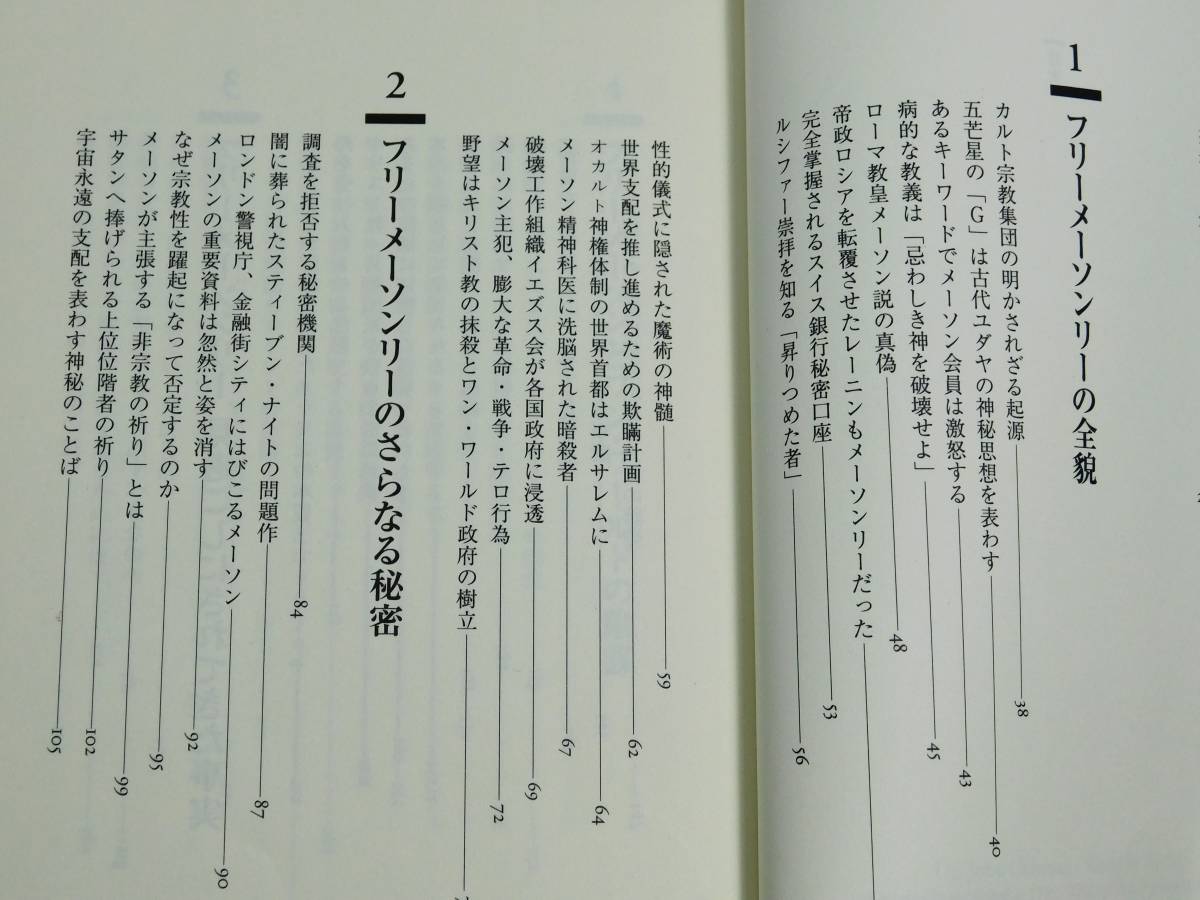 1
フリーメーソンリーの全貌
カルト宗教集団の明かされざる起源 38
五芒星の「G」は古代ユダヤの神秘思想を表わす 40
あるキーワードでメーソン会員は激怒する 43
病的な教義は「忌わしき神を破壊せよ」 45
ローマ教皇メーソン説の真偽 48
帝政ロシアを転覆させたレーニンもメーソンリーだった
完全掌握されるスイス銀行秘密口座 53
ルシファー崇拝を知る「昇りつめた者」 56
性的儀式に隠された魔術の神髄 59
世界支配を推し進めるための欺瞞計画 62
オカルト神権体制の世界首都はエルサレムに 64
メーソン精神科医に洗脳された暗殺者 67
破壊工作組織イエズス会が各国政府に浸透 69
メーソン主犯、膨大な革命・戦争・テロ行為 72
野望はキリスト教の抹殺とワン・ワールド政府の樹立
2
フリーメーソンリーのさらなる秘密
調査を拒否する秘密機関 84
闇に葬られたスティーブン・ナイトの問題作 87
ロンドン警視庁、金融街シティにはびこるメーソン 90
メーソンの重要資料は忽然と姿を消す 92
なぜ宗教性を躍起になって否定するのか 95
メーソンが主張する「非宗教の祈り」とは 99
サタンへ捧げられる上位位階者の祈り 102
宇宙永遠の支配を表わす神秘のことば 105